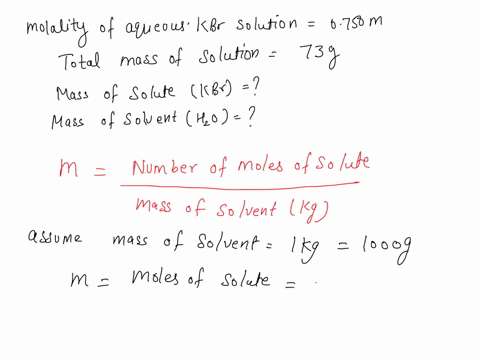 molality of aqueous KBr solution = 0.750 m
Total mass of solution = 73g
Mass of Solute (KBr) = ?
Mass of Solvent (H₂O) = ?
m = Number of Moles of Solute
Mass of Solvent (Kg)
assume mass of Solvent = 1Kg = 1000g
m = Moles of Solute =